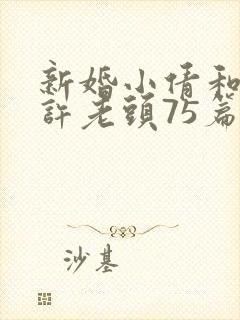 新婚小倩和
許老頭75篇
沙基